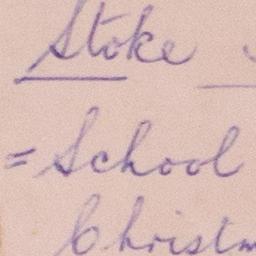 Stoke
= School
Christm